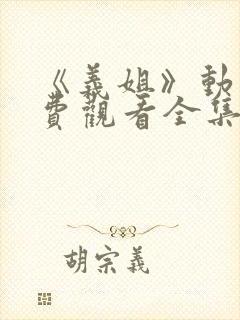 《義姐》動
費觀看全集
胡宗義